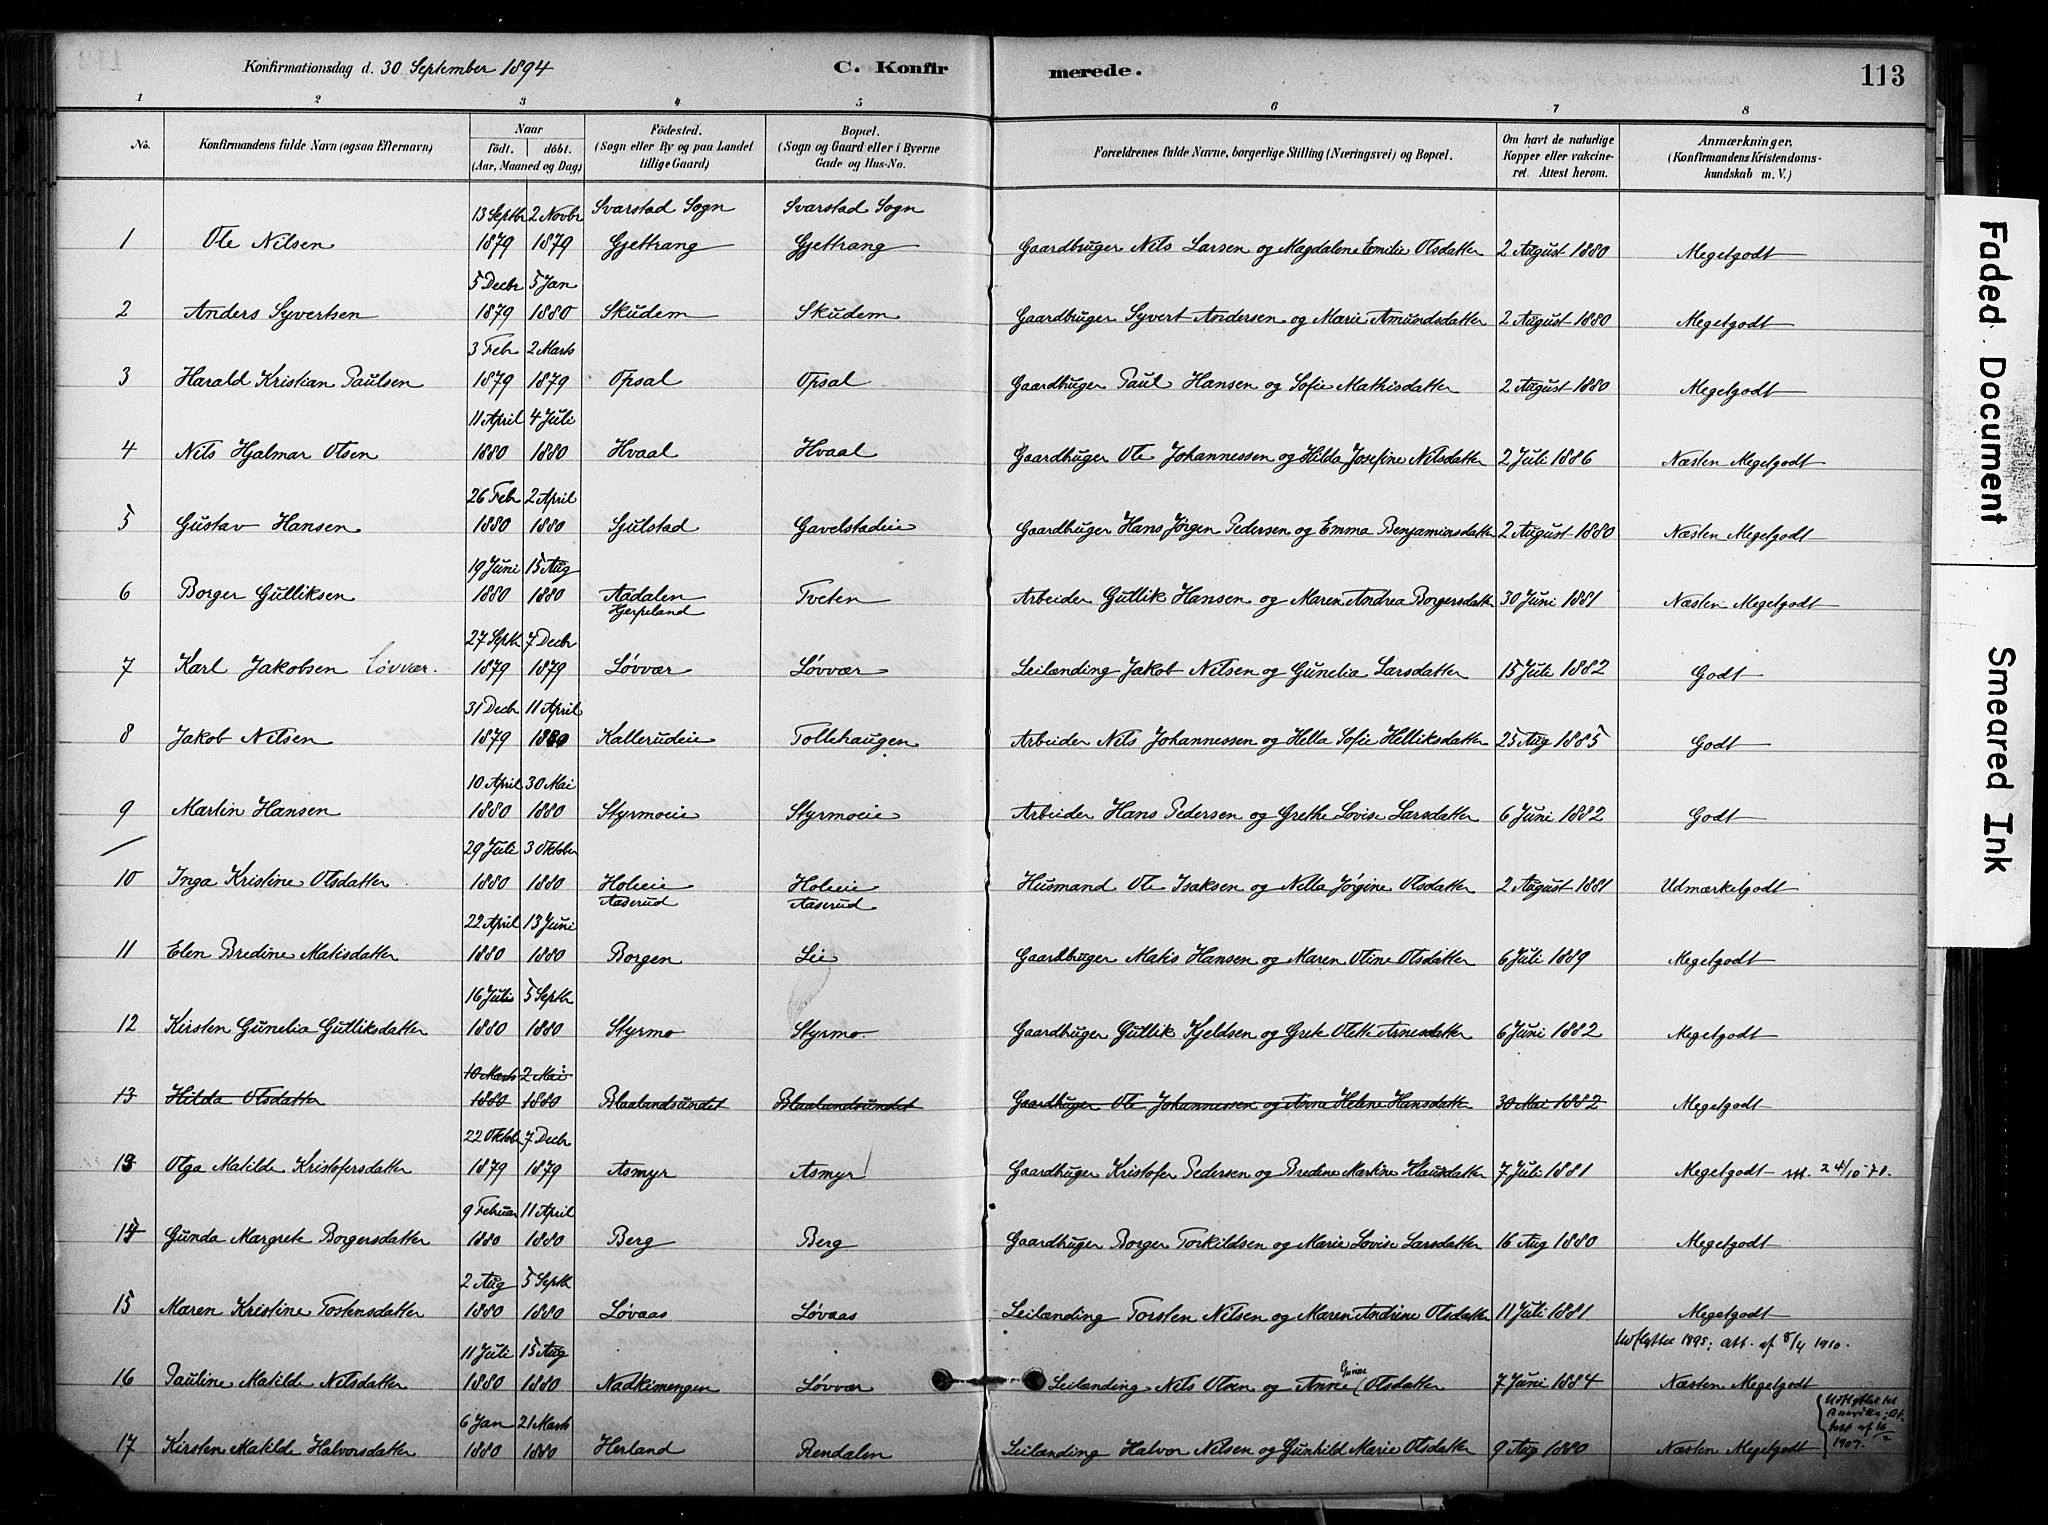 Konfirmationsdag d. 30 September 1894 C. Konfirmerede. 113
1 2 3 4 5 6 7 8
No. Konfirmandens fulde Navn (ogsaa Efternavn) Naar födt. döbt. (Aar, Maaned og Dag) Födested. (Sogn eller By og paa Landet tillige Gaard) Bopæl. (Sogn og Gaard eller i Byerne Gade og Hus-No. Forældrenes fulde Navne, borgerlige Stilling (Næringsvei) og Bopæl. Om havt de naturlige Kopper eller vakcineret. Attest herom. Anmærkninger, (Konfirmandens Kristendomskundskab m. V.)
13 Septbr 2 Novbr Svarstad Sogn Svarstad Sogn
1 Ole Nilsen 1879 1879 Gjettrang Gjettrang Gaardbruger Nils Larsen og Magdalene Emilie Olsdatter 2 August 1880 Megetgodt
5 Decbr 5 Jan
2 Anders Syvertsen 1879 1880 Skudem Skudem Gaardbruger Syvert Andersen og Marie Amundsdatter 2 August 1880 Megetgodt
3 Febr 2 Marts
3 Harald Kristian Paulsen 1879 1879 Opsal Opsal Gaardbruger Paul Hansen og Sofie Mathisdatter 2 August 1880 Megetgodt
11 April 4 Juli
4 Nils Hjalmar Olsen 1880 1880 Hvaal Hvaal Gaardbruger Ole Johannessen og Hilda Josefine Nilsdatter 2 Juli 1886 Næsten Megetgodt
26 Febr 2 April
5 Gustav Hansen 1880 1880 Sjulstad Gavelstadeie Gaardbruger Hans Jörgen Pedersen og Emma Benjaminsdatter 2 August 1880 Næsten Megetgodt
19 Juni 15 Aug
6 Borger Gulliksen 1880 1880 Aadalen Tveten Arbeider Gullik Hansen og Maren Andrea Borgersdatt 30 Juni 1881 Næsten Megetgodt
Hjerpeland
27 Septbr 7 Decbr
7 Karl Jakobsen Løvvær. 1879 1879 Løvvær Løvvær Leilænding Jakob Nilsen og Gunelia Larsdatter 15 Juli 1882 Godt
31 Decbr 11 April
8 Jakob Nilsen 1879 1880 Kallerudeie Tollehaugen Arbeider Nils Johannessen og Hella Sofie Helliksdatter 25 Aug 1885 Godt
10 April 30 Mai
9 Martin Hansen 1880 1880 Styrmoeie Styrmoeie Arbeider Hans Pedersen og Grethe Lovise Larsdatter 6 Juni 1882 Godt
29 Juli 3 Oktober
10 Inga Kristine Olsdatter 1880 1880 Holeie Holeie Husmand Ole Isaksen og Nella Jörgine Olsdatter 2 August 1881 Udmærketgodt
Aaserud Aaserud
22 April 13 Juni
11 Elen Bredine Matisdatter 1880 1880 Borgen Lie Gaardbruger Matis Hansen og Maren Oline Olsdatter 6 Juli 1889 Megetgodt
16 Juli 5 Septbr
12 Kirsten Gunelia Gulliksdatter 1880 1880 Styrmo Styrmo. Gaardbruger Gullik Kjeldsen og Grete Olette Arnesdatter 6 Juni 1882 Megetgodt
10 Marts 2 Mai
13 Hilda Olsdatter 1880 1880 Blaalandsundet Blaalandsundet Gaardbruger Ole Johannessen og Anne Helene Hansdatt 30 Mai 1882 Megetgodt
22 Oktobr 7 Decbr
13 Olga Matilde Kristofersdatter 1879 1879 Asmyr Asmyr Gaardbruger Kristofer Pedersen og Bredine Martine Klausdatter 7 Juli 1881 Megetgodt 24/10-78.
9 Februar 11 April
14 Gunda Margrete Borgersdatter 1880 1880 Berg Berg Gaardbruger Borger Torkildsen og Marie Lovise Larsdatter 16 Aug 1880 Megetgodt
2 Aug 5 Septbr
15 Maren Kristine Tostensdatter 1880 1880 Løvaas Løvaas Leilænding Torsten Nilsen og Maren Andrine Olsdatter 11 Juli 1881 Megetgodt
11 Juli 15 Aug Udflyttet 1895; att. af 8/4 1910.
16 Pauline Matilde Nilsdatter 1880 1880 Nadkimengen Løvvær Leilænding Nils Olsen og Anne Gurine Olsdatter 7 Juni 1884 Næsten Megetgodt
6 Jan 21 Marts Udflyttet til
17 Kirsten Matilde Halvorsdatter 1880 1880 Herland Rendalen Leilænding Halvor Nilsen og Gunhild Marie Olsdatter 9 Aug 1880 Næsten Megetgodt 1907.
Faded Document
Smeared Ink